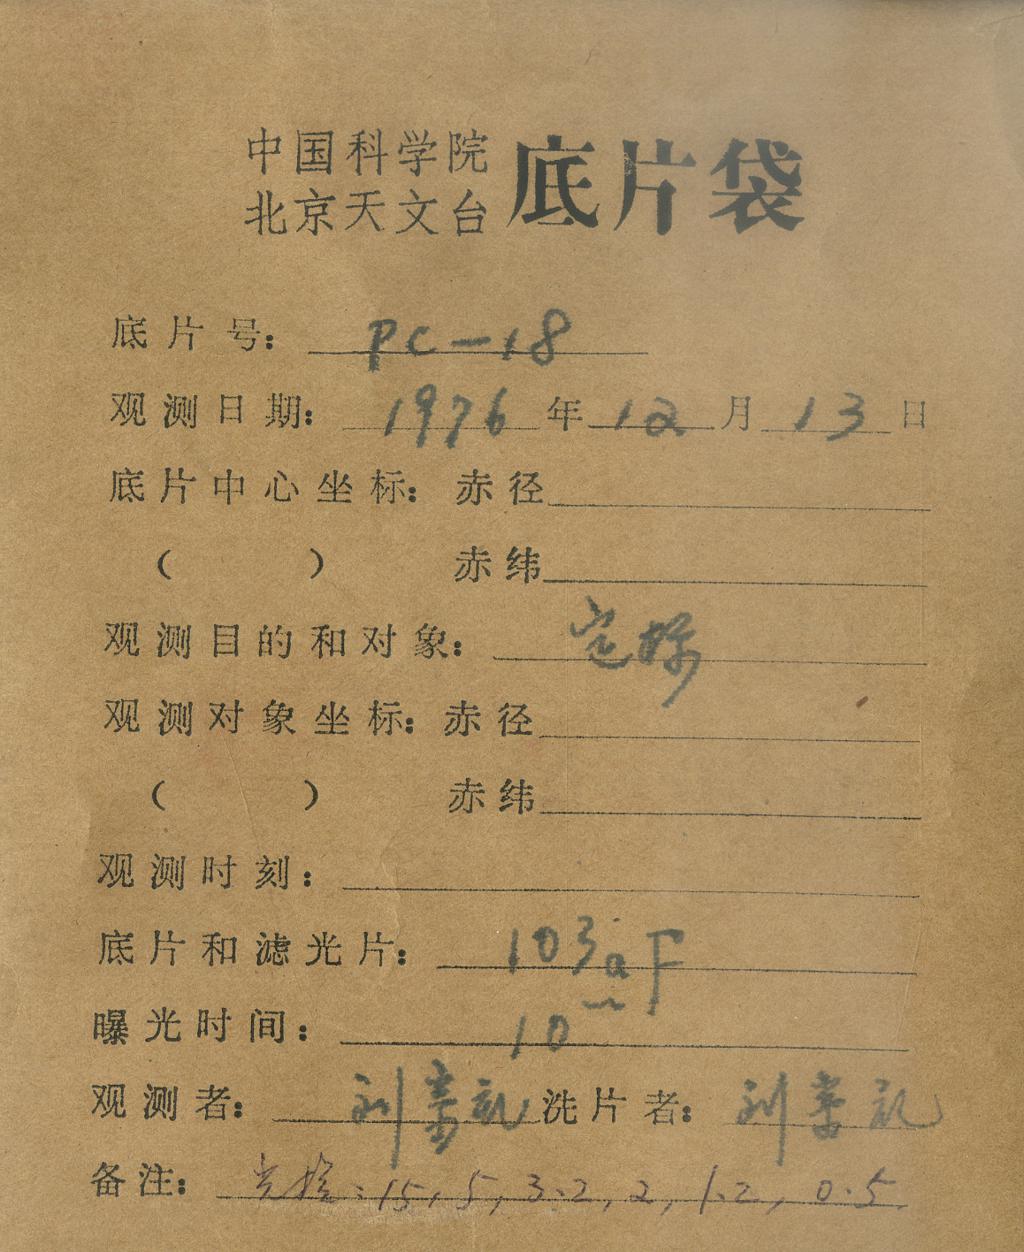 中国科学院
北京天文台 底片袋
底片号: PC-18
观测日期: 1976年12月13日
底片中心坐标: 赤径
( ) 赤纬
观测目的和对象: 定标
观测对象坐标: 赤径
( ) 赤纬
观测时刻:
底片和滤光片: 103aF
曝光时间: 10m
观测者: 刘 洗片者: 刘
备注: : 15, 5, 3.2, 2, 1.2, 0.5